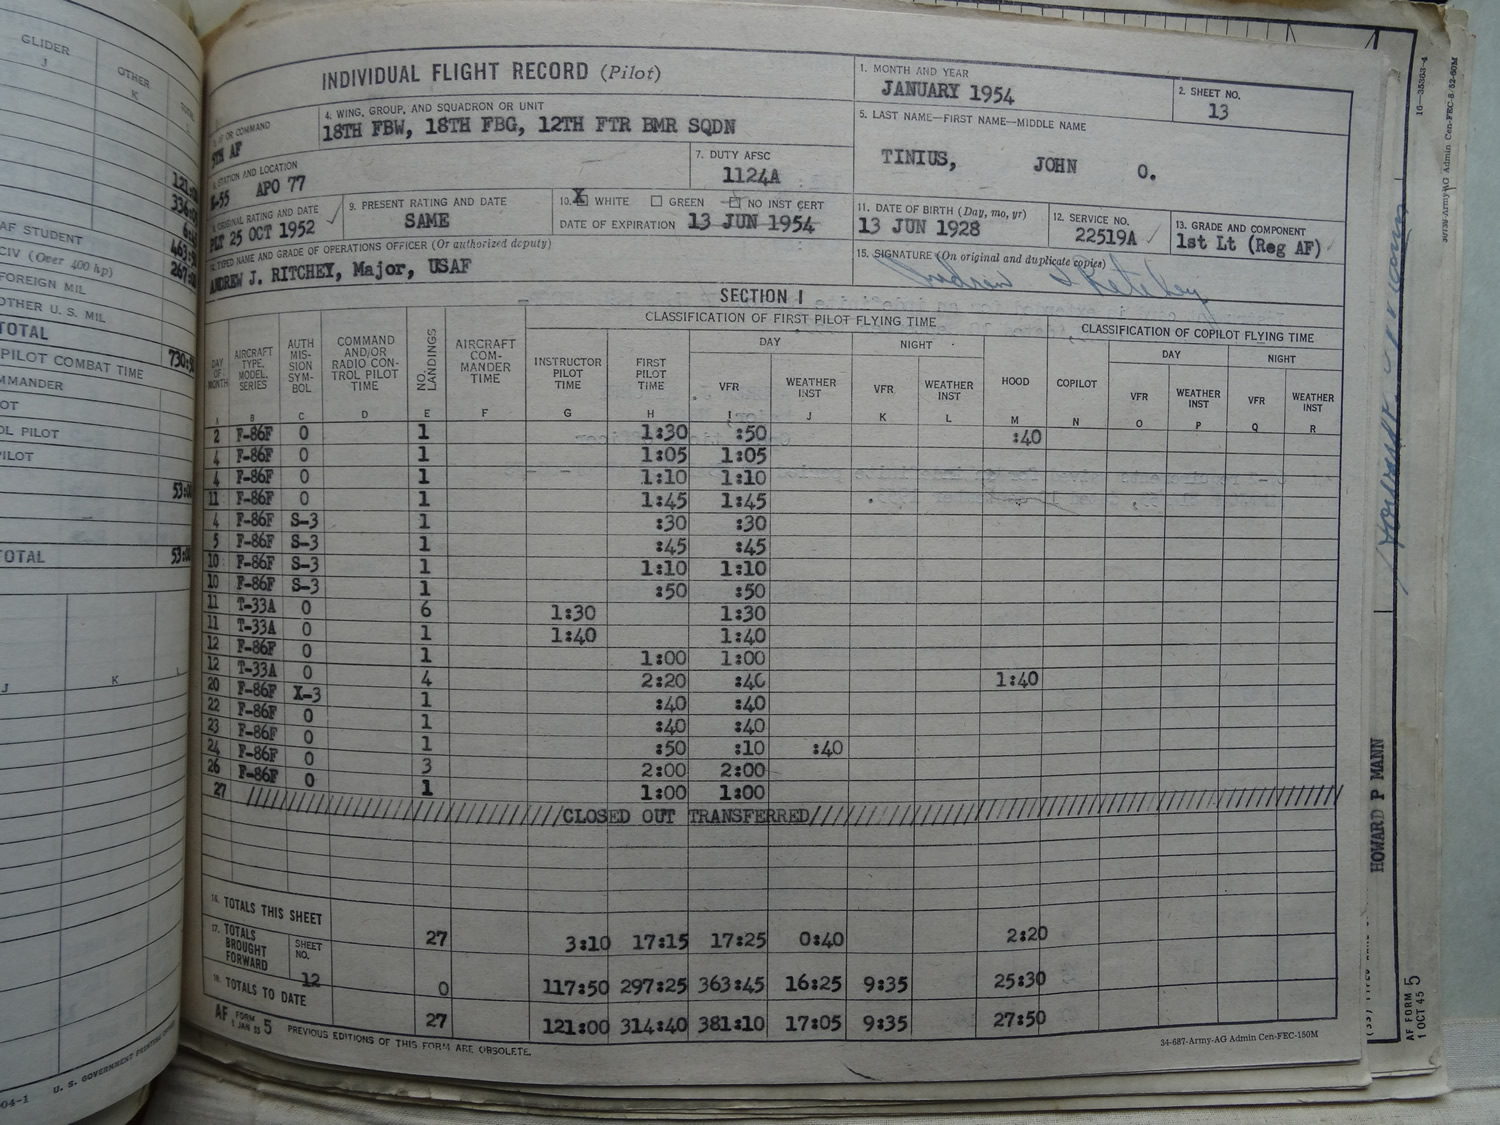 GLIDER
J
OTHER
K
121:
336:
6:
AF STUDENT
463:
CIV (Over 400 hp)
267:
FOREIGN MIL
OTHER U. S. MIL
TOTAL
730:
PILOT COMBAT TIME
MMANDER
OT
OL PILOT
PILOT
53:00
TOTAL
53:00
J K L
04-1 U. S. GOVERNMENT PRINTING OFFICE
INDIVIDUAL FLIGHT RECORD (Pilot)
1. MONTH AND YEAR
JANUARY 1954
2. SHEET NO.
13
3. AF OR COMMAND
5TH AF
4. WING, GROUP, AND SQUADRON OR UNIT
18TH FBW, 18TH FBG, 12TH FTR BMR SQDN
5. LAST NAME—FIRST NAME—MIDDLE NAME
TINIUS, JOHN O.
6. STATION AND LOCATION
K-55 APO 77
7. DUTY AFSC
1124A
8. ORIGINAL RATING AND DATE
PLT 25 OCT 1952
9. PRESENT RATING AND DATE
SAME
10. X WHITE GREEN NO INST CERT
DATE OF EXPIRATION 13 JUN 1954
11. DATE OF BIRTH (Day, mo, yr)
13 JUN 1928
12. SERVICE NO.
22519A
13. GRADE AND COMPONENT
1st Lt (Reg AF)
14. TYPED NAME AND GRADE OF OPERATIONS OFFICER (Or authorized deputy)
ANDREW J. RITCHEY, Major, USAF
15. SIGNATURE (On original and duplicate copies)
Andrew J Ritchey
SECTION I
CLASSIFICATION OF FIRST PILOT FLYING TIME
CLASSIFICATION OF COPILOT FLYING TIME
DAY NIGHT DAY NIGHT
DAY OF MONTH
AIRCRAFT TYPE, MODEL, SERIES
AUTH MIS- SION SYM- BOL
COMMAND AND/OR RADIO CON- TROL PILOT TIME
NO. LANDINGS
AIRCRAFT COM- MANDER TIME
INSTRUCTOR PILOT TIME
FIRST PILOT TIME
VFR
WEATHER INST
VFR
WEATHER INST
HOOD
COPILOT
VFR
WEATHER INST
VFR
WEATHER INST
A B C D E F G H I J K L M N O P Q R
2 F-86F O 1 1:30 :50 :40
4 F-86F O 1 1:05 1:05
4 F-86F O 1 1:10 1:10
11 F-86F O 1 1:45 1:45
4 F-86F S-3 1 :30 :30
5 F-86F S-3 1 :45 :45
10 F-86F S-3 1 1:10 1:10
10 F-86F S-3 1 :50 :50
11 T-33A O 6 1:30 1:30
11 T-33A O 1 1:40 1:40
12 F-86F O 1 1:00 1:00
12 T-33A O 4 2:20 :40 1:40
20 F-86F X-3 1 :40 :40
22 F-86F O 1 :40 :40
23 F-86F O 1 :50 :10 :40
24 F-86F O 3 2:00 2:00
26 F-86F O 1 1:00 1:00
27 ////////////////////CLOSED OUT TRANSFERRED////////////////////
16. TOTALS THIS SHEET 27 3:10 17:15 17:25 0:40 2:20
17. TOTALS BROUGHT FORWARD SHEET NO. 12 0 117:50 297:25 363:45 16:25 9:35 25:30
18. TOTALS TO DATE 27 121:00 314:40 381:10 17:05 9:35 27:50
AF FORM 1 JAN 53 5 PREVIOUS EDITIONS OF THIS FORM ARE OBSOLETE.
34-687-Army-AG Admin Cen-FEC-150M
HOWARD P MANN
AF FORM 5
1 OCT 45
16—35363-4